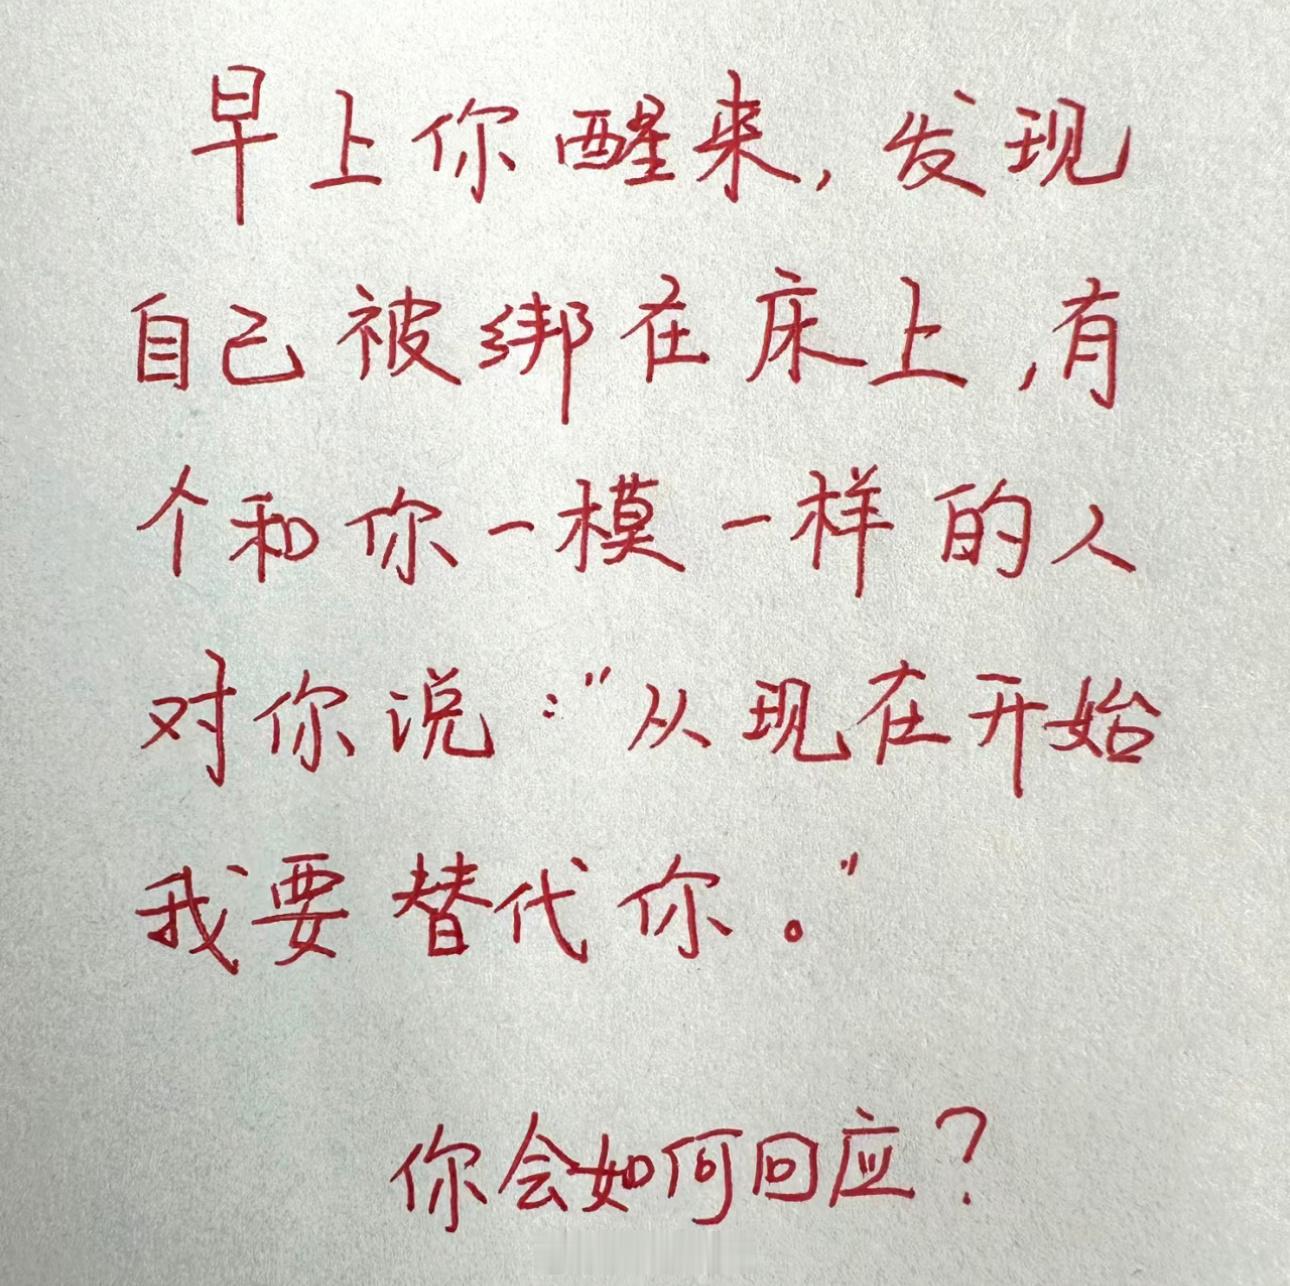 早上你醒来,发现
自己被绑在床上,有
个和你一模一样的人
对你说:"从现在开始
我要替代你。"
你会如何回应?